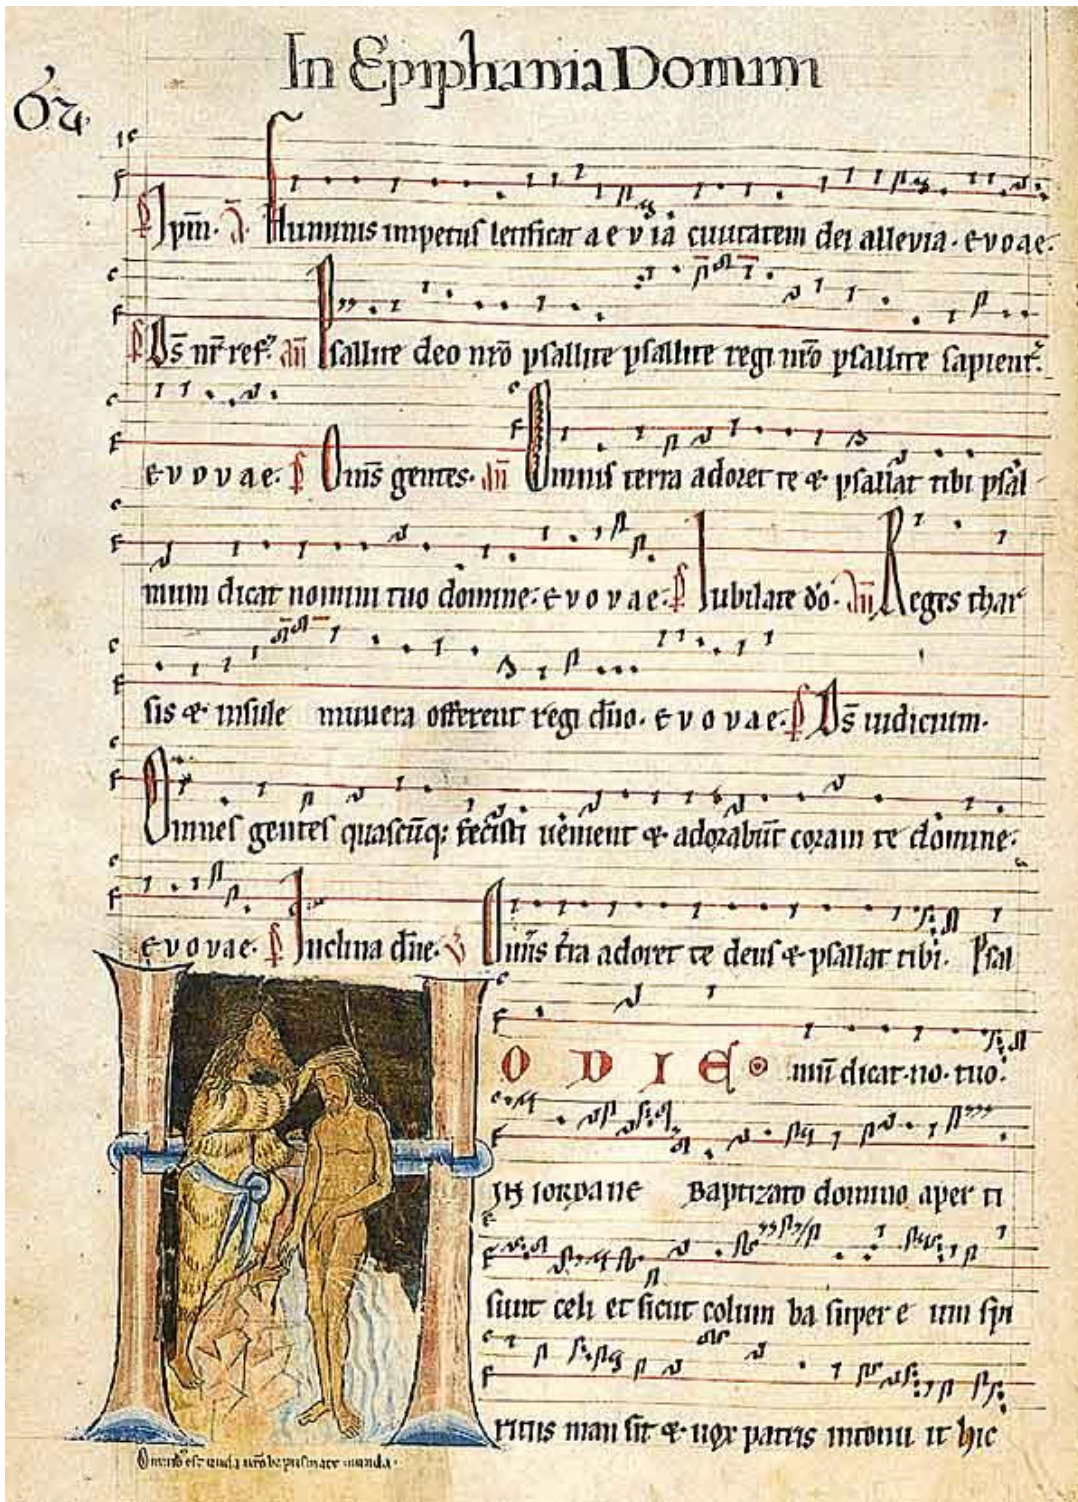 In Epiphania Domini
62.
p̄ Ipm̄. ā. Fluminis impetus letificat a e v ia civitatem dei allevia. e v o a e.
p̄ Ds̄ nr̄ ref. an̄ Psallite deo nrō psallite psallite regi nrō psallite sapient.
e v o v a e. p̄ Om̄s gentes. an̄ Omnis terra adoret te & psallat tibi psal
mum dicat nomini tuo domine. e v o v a e. p̄ Iubilate dō. an̄ Reges thar
sis & insule munera offerent regi dn̄o. e v o v a e. p̄ Ds̄ iudicium.
Omnes gentes quascūq; fecisti venient & adorabūt coram te domine.
e v o v a e. p̄ Inclina dn̄e. v̄ Omīs t̄ra adoret te deus & psallat tibi. Psal
HODIE mū dicat no. tuo.
IN IORDANE Baptizato domino aper ti
sunt celi et sicut colum ba super e um spi
ritus man sit & vox patris intonu it hic
Omnis est unda nrō baptismate munda.